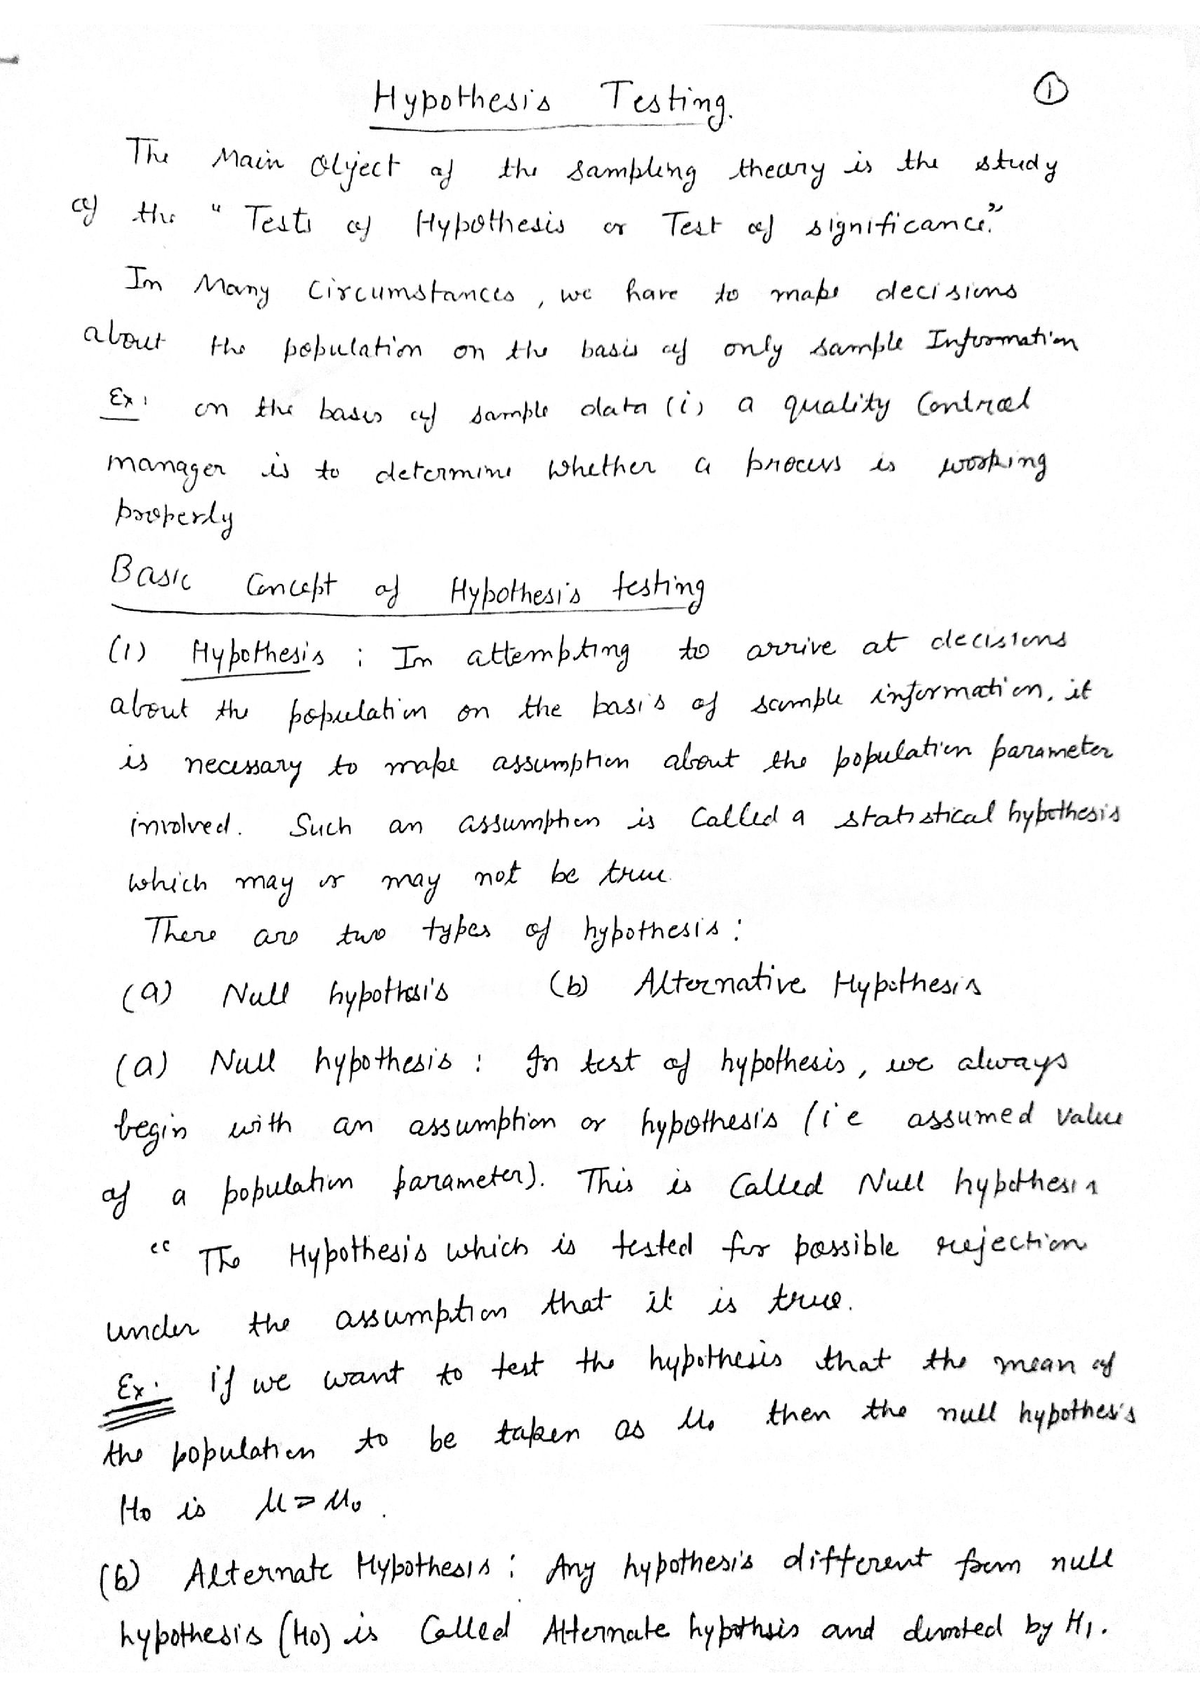 Hypothesis Testing. 1
The Main Object of the sampling theory is the study
of the "Tests of Hypothesis or Test of significance."
In Many Circumstances, we have to make decisions
about the population on the basis of only sample Information
Ex: on the basis of sample data (i) a quality Control
manager is to determine whether a process is working
properly
Basic Concept of Hypothesis testing
(1) Hypothesis : In attempting to arrive at decisions
about the population on the basis of sample information, it
is necessary to make assumption about the population parameter
involved. Such an assumption is Called a statistical hypothesis
which may or may not be true.
There are two types of hypothesis :
(a) Null hypothesis (b) Alternative Hypothesis
(a) Null hypothesis : In test of hypothesis, we always
begin with an assumption or hypothesis (i e assumed value
of a population parameter). This is Called Null hypothesis
" The Hypothesis which is tested for possible rejection
under the assumption that it is true.
Ex: if we want to test the hypothesis that the mean of
the population to be taken as μ₀ then the null hypothesis
H₀ is μ = μ₀.
(b) Alternate Hypothesis : Any hypothesis different form null
hypothesis (H₀) is Called Alternate hypothsis and denoted by H₁.